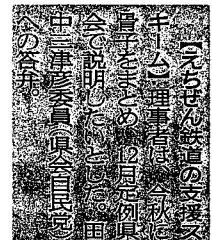 【えちぜん鉄道の支援ス
キーム】理事者は、今秋に
骨子をまとめ、12月定例県
会で説明したいとした。田
中三津彦委員(県会自民党)
への答弁。